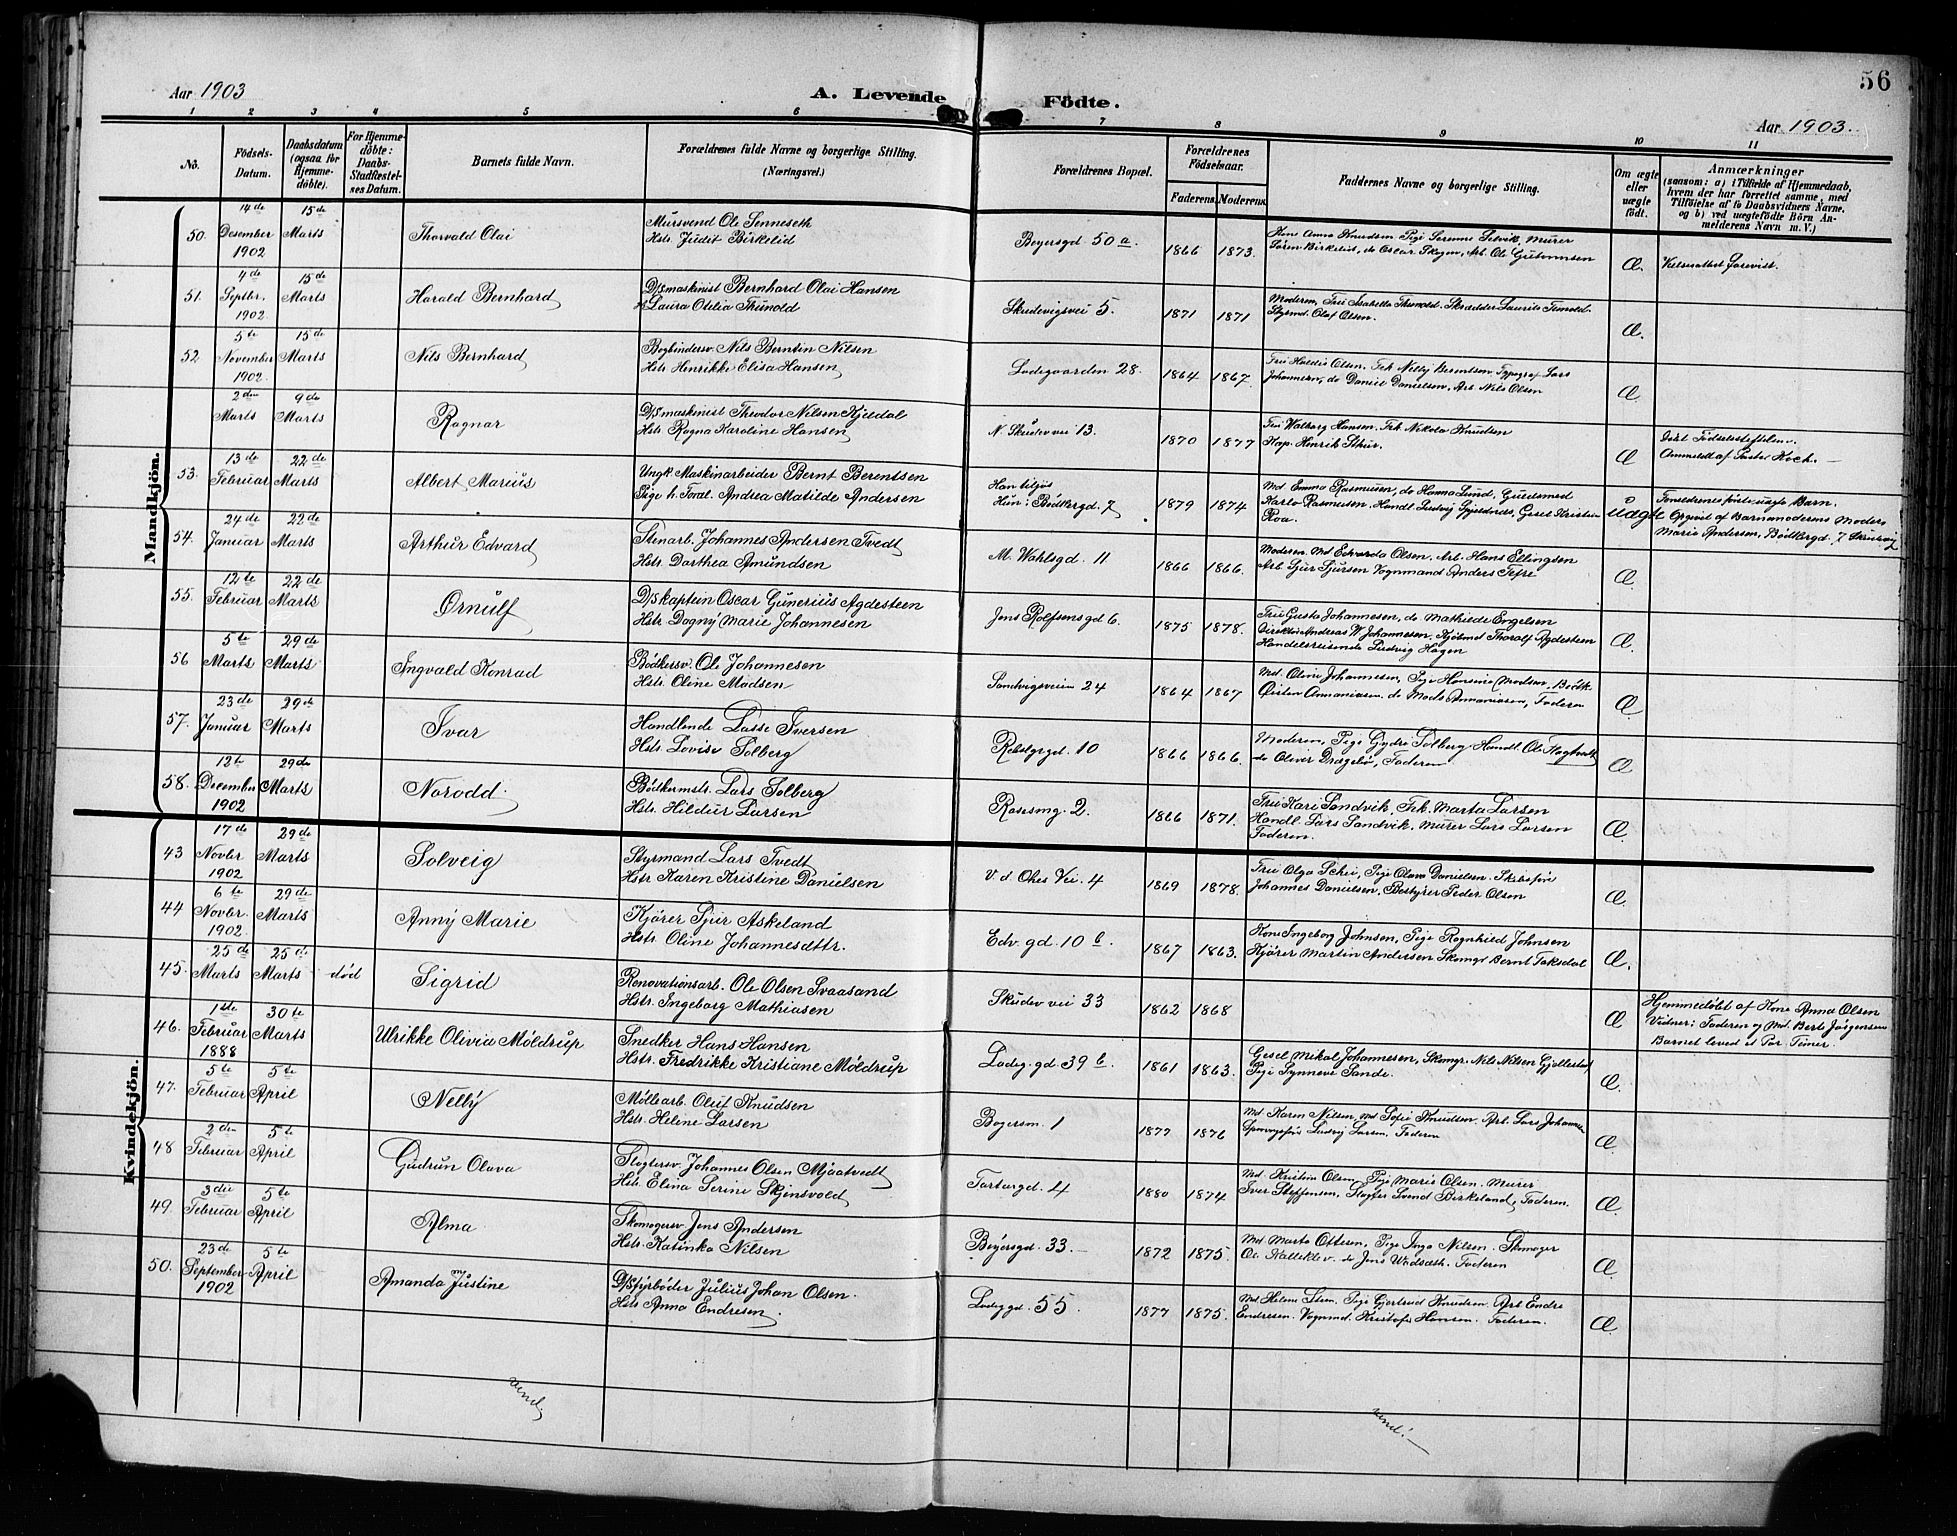 56
Aar 1903
A. Levende Födte.
Aar 1903.
1 2 3 4 5 6 7 8 9 10 11
No.
Födsels-Datum.
Daabsdatum (ogsaa for Hjemme-döbte).
For Hjemme-döbte: Daabs-Stadfæstel-ses Datum.
Barnets fulde Navn.
Forældrenes fulde Navne og borgerlige Stilling.
(Næringsvei.)
Forældrenes Bopæl.
Forældrenes Födselsaar.
Faderens. Moderens.
Faddernes Navne og borgerlige Stilling.
Om ægte eller uægte födt.
Anmærkninger
(saasom: a) i Tilfælde af Hjemmedaab, hvem der har forrettet samme, med Tilföielse af to Daabsvidners Navne, og b) ved uægtefödte Börn An-melderens Navn m. V.)
Mandkjön.
50. 14de Desember 1902 15de Marts Thorvald Olai
Mursvend Ole Senneseth
Hstr. Judit Birkelid
Beyersgd 50 a. 1866 1873.
Kone Anna Knudsen, Pige Serene Selvik, Murer
Sören Birkelid, do Oscar Skogen, Arb. Ole
Æ.
51. 4de Septbr. 1902 15de Marts Harald Bernhard
D/S maskinist Bernhard Olai Hansen
Hst. Laura Otilia Thunold
Skudevigsvei 5. 1871 1871
Moderen, Fru Isabella Thunold. Skrædder Laurits
Styrmd. Olaf Olsen.
Æ.
52. 5te November 1902. 15de Marts Nils Bernhard
Bogbindersv. Nils Berntin Nilsen
Hstr. Henrikke Elisa Hansen
Ladegaarden 28. 1864 1867.
Fru Huldis Olsen. Frk Nelly Berentsen Typograf Lars
Johannesen, do Daniel Danielsen, Arb Nils Olsen
Æ.
2den Marts 9de Marts Ragnar
D/S maskinist Theodor Nilsen Kjildal
Hstr. Ragna Karoline Hansen
N. Skudev vei 13. 1870 1877
Fru Walborg Hansen. Frk. Nikola Knudsen
Kap. Henrik Sthur.
Æ
Anmeldt af Pastor Koch. —
53. 13de Februar 22de Marts Albert Marius
Ungk. Maskinarbeider Bernt Berentsen
Pige h. Foræl. Andrea Matilde Andersen
Han tilsjös
Hun: Bödkergd. 7 1879 1874
Md Emma Rasmussen, do Hanna Lund, Guldsmed
Karlo Rasmussen, Handl. Ludvig Gjeldvold, Gesel Kristian
Roa.
uægt
Forældrenes förste uægte Barn.
Opgivet af Barnemoderens Moder
Marie Andersen, Bödkergd. 7
54. 24de Januar 22de Marts Arthur Edvard
Stenarb. Johannes Andersen Tvedt
Hstr. Dorthea Amundsen
M. Wahlsgd. 11 1866 1866.
Moderen. Md Edvarda Olsen, Arb. Hans Ellingsen
Arb Sjur Sjursen Vognmand Anders Tefre
Æ
55. 12te Februar 22de Marts Ørnulf
D/S kaptein Oscar Gunerius Agdesteen
Hstr. Dagny Marie Johannesen
Jens Rolfsensgd 6. 1875 1878.
Fru Gusta Johannesen, do Mathilde Engelsen
Direktör Andreas W Johannesen, Kjöbmd Thoralf Agdesteen
Handelsreisende Ludvig Hagen
Æ.
56 5te Marts 29de Marts Ingvald Konrad
Bödkersv. Ole Johannesen
Hstr. Oline Madsen
Sandvigsveien 24 1864 1867
Md. Oline Johannesen, Pige Hansine Madsen, Bödk.
Annaniasen, do Mads Annaniasen, Faderen
Æ.
57. 23de Januar 29de Marts Ivar
Handlende Lasse Iversen
Hstr. Lovise Solberg
Rebslgrgd. 10 1866 1866.
Moderen, Pige Gydri Solberg Handl. Ole Hogtvedt
do Oliver Dragebö, Faderen
Æ
58. 12te December 1902 29de Marts Norodd
Bödkermstr. Lars Solberg
Hstr. Hildur Larsen
Rosesmg 2. 1866 1871.
Fru Kari Sandvik, Frk. Marta Larsen
Handl. Lars Sandvik, Murer Lars Larsen
Faderen.
Æ.
Kvindekjön.
43 17de Novbr 1902 29de Marts Solveig
Styrmand Lars Tvedt
Hstr Karen Kristine Danielsen
V. d. Ohes Vei. 4 1869 1878.
Fru Olga Schei, Pige Olava Danielsen. Skibsför
Johannes Danielsen, Bestyrer Peder Olsen
Æ.
44 6te Novbr. 1902. 29de Marts Anny Marie
Kjörer Sjur Askeland
Hstr. Oline Johannesdttr.
Edv. gd. 10 b. 1867 1863.
Kone Ingeborg Johnsen, Pige Ragnhild Johnsen
Kjörer Martin Andersen Skomgr Bernt Taksdal
Æ.
45. 25de Marts 25de Marts död Sigrid
Renovationsarb. Ole Olsen Svaasand
Hstr. Ingeborg Mathiasen
Skudev vei 33 1862 1868
Æ
Hjemmedöbt af Kone Anna Olsen
Vidner: Faderen og Md. Berte Jörgensen
Barnet leved et Par Timer.
46. 1ste Februar 1888 30te Marts Ulrikke Olivia Møldrup
Snedker Hans Hansen
Hstr. Fredrikke Kristiane Møldrup
Ladeg. gd 39 b. 1861 1863.
Gesel Mikal Johannesen, Skomgr. Nils Nilsen Gjellestad
Pige Synneve Sande.
Æ.
47. 5te Februar 5te April Nelly
Möllearb. Oluf Knudsen
Hstr. Helene Larsen
Bogersm. 1 1877 1876
Md. Karen Nilsen, Md Sofie Knudsen, Arb. Lars Johannes
Ludvig Larsen, Faderen
Æ.
48 2den Februar 5te April Gudrun Olava
Slagtersv. Johannes Olsen Mjaatvedt
Hstr. Elina Serine Skjensvold
Tartargd. 4 1880 1874
Md. Kristine Olsen, Pige Marie Olsen. Murer
Iver Steffensen, Slagter Svend Birkeland, Faderen.
Æ.
49. 3die Februar 5te April Alma
Skomagersv. Jens Andersen
Hstr. Katinka Nilsen
Beyersgd. 33. 1872 1875.
Md. Marta Ottesen, Pige Inga Nilsen. Skomager
do Jens Wadseth. Faderen
Æ.
50. 23de September 1902 5te April Amanda Justine
D/S fyrböder Julius Johan Olsen.
Hstr Anna Endresen.
Ladeg gd. 55. 1877 1875.
Md Helene Steen, Pige Gjertrud Knudsen. Arb Endre
Endresen. Vognmd. Kristofer Hansen. Faderen.
Æ.
vend.
vend. —